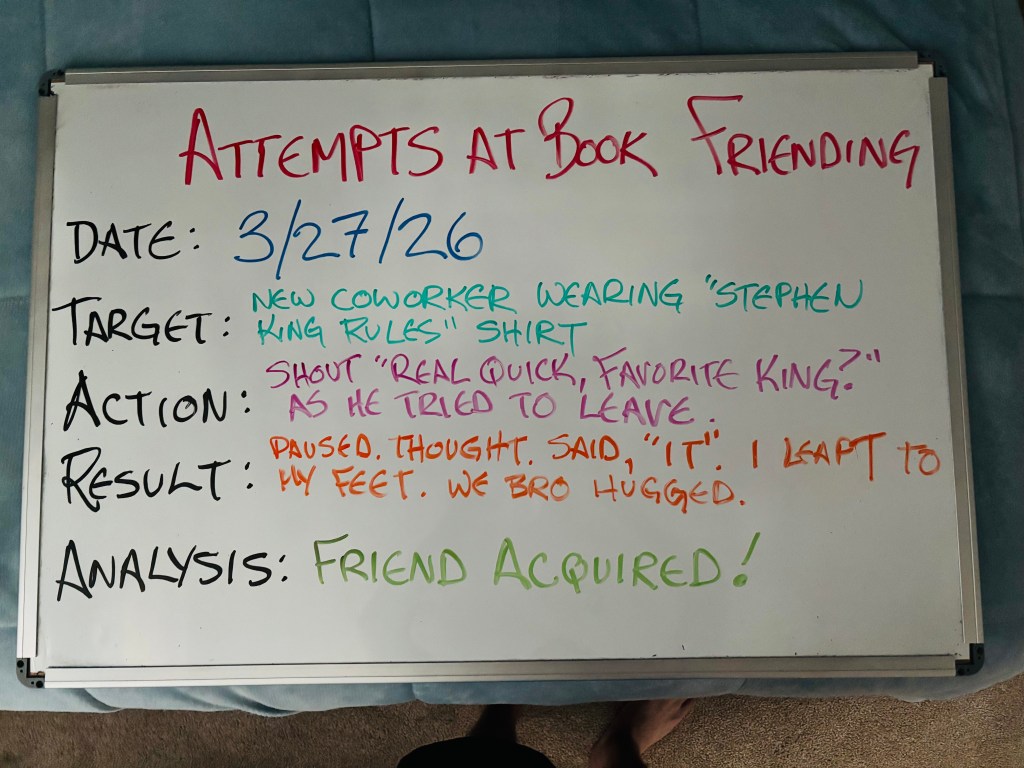 ATTEMPTS AT BOOK FRIENDING
DATE: 3/27/26
TARGET: NEW COWORKER WEARING "STEPHEN
KING RULES" SHIRT
ACTION: SHOUT "REAL QUICK, FAVORITE KING?"
AS HE TRIED TO LEAVE.
RESULT: PAUSED. THOUGHT. SAID, "IT". I LEAPT TO
MY FEET. WE BRO HUGGED.
ANALYSIS: FRIEND ACQUIRED!